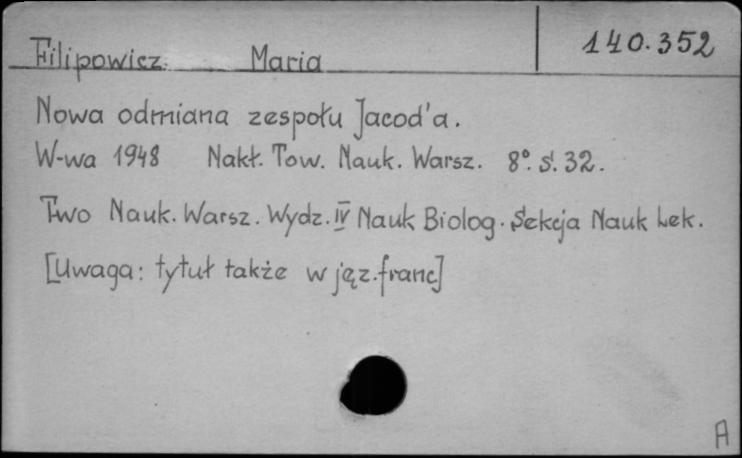 Filipowicz Maria 140.352
Nowa odmiana zespołu Jacod'a.
W-wa 1948 Nakł. Tow. Nauk. Warsz. 8°. S. 32.
Two Nauk. Warsz. Wydz. IV Nauk Biolog. Sekcja Nauk Lek.
[Uwaga: tytuł także w jęz. franc]
A